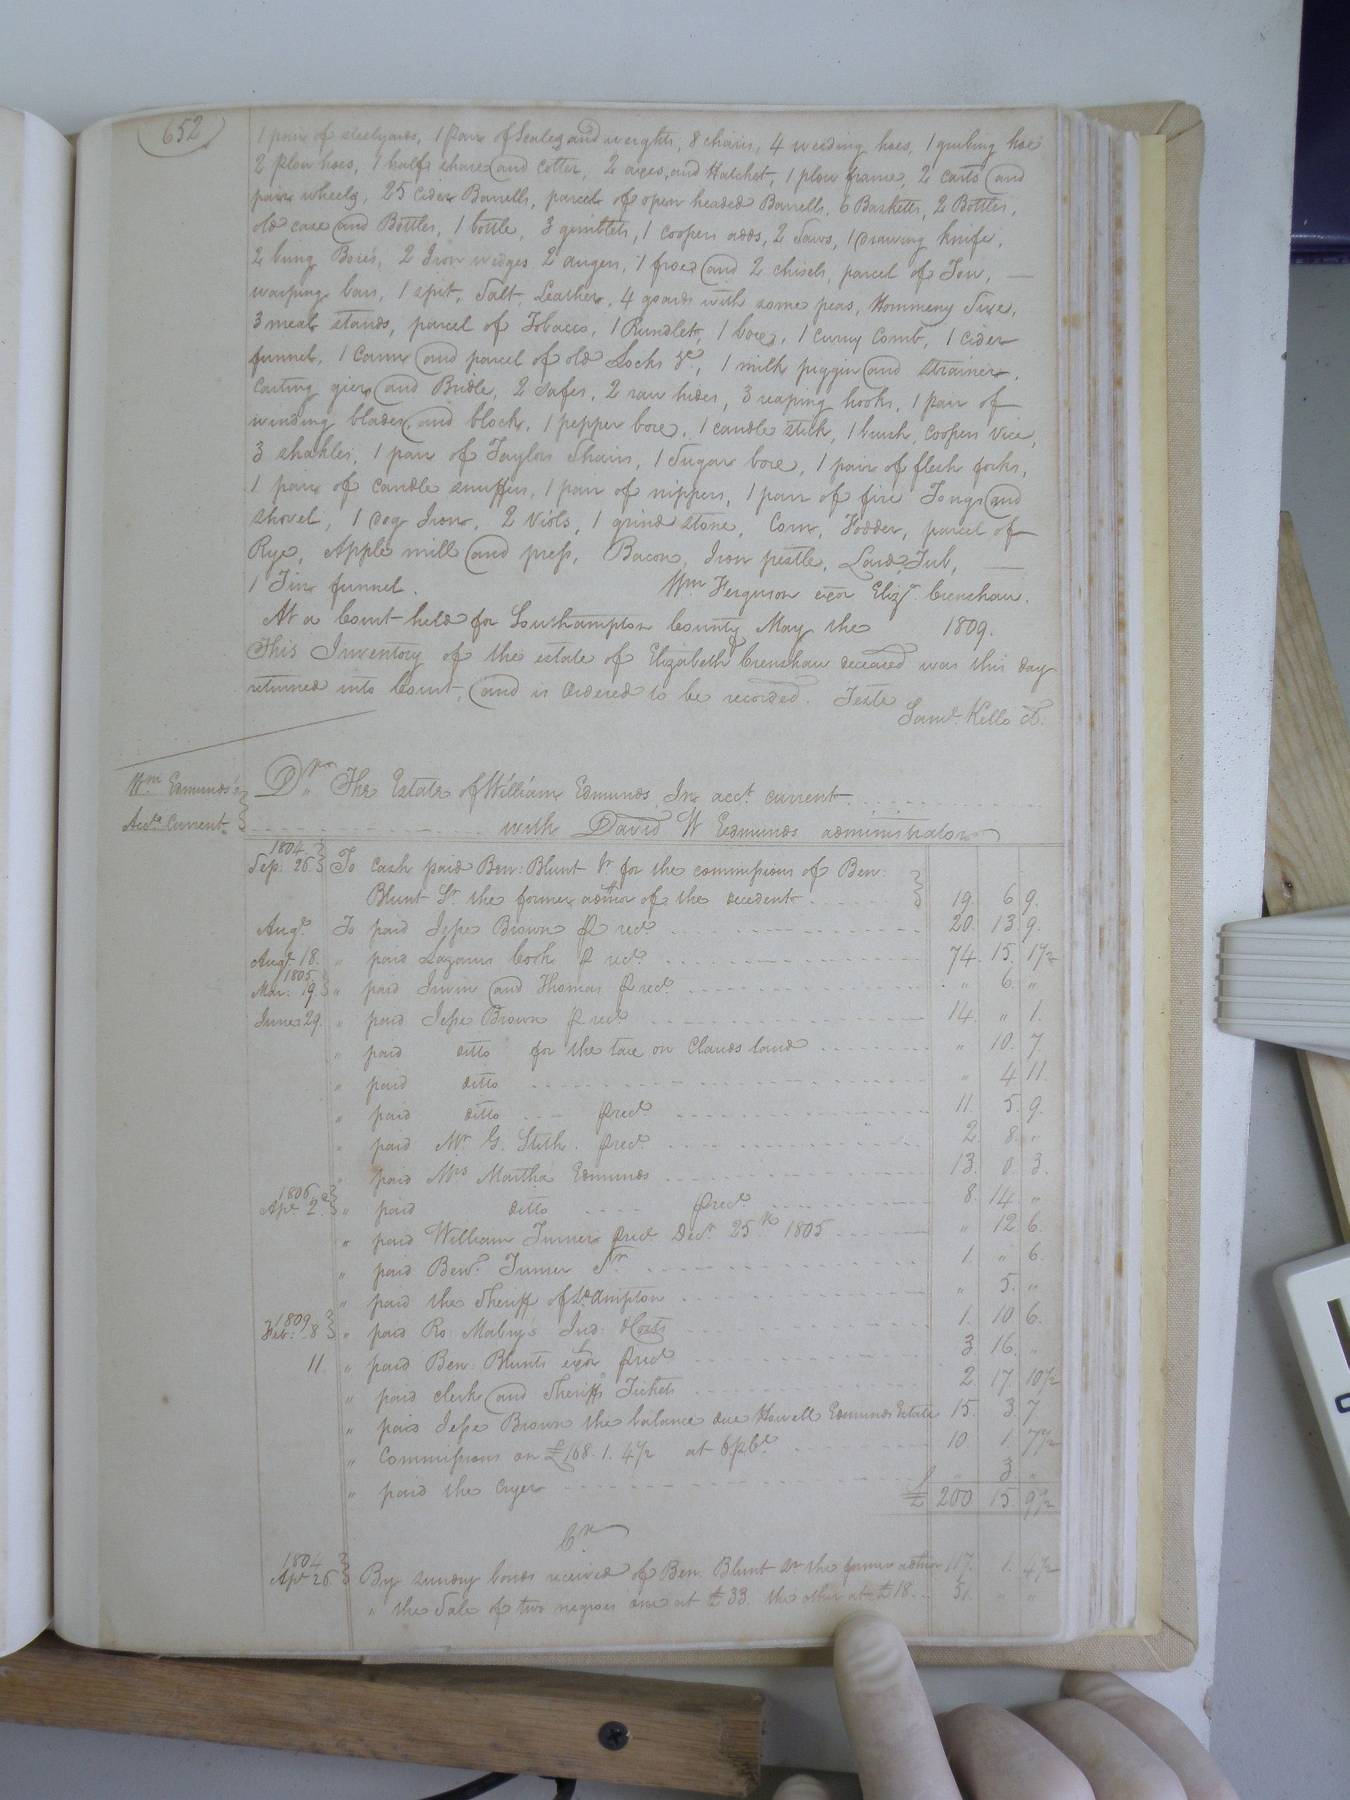 652
1 pair of steelyards, 1 Pair of Scales and weights, 8 chairs, 4 weeding hoes, 1 grubing hoe
2 plow hoes, 1 half share and cotter, 2 axes, and Hatchet, 1 plow frame, 2 carts and
pair wheels, 25 Cider Barrells, parcel of open headed Barrells, 6 Basketts, 2 Bottles,
old case and Bottles, 1 bottle, 3 gimblets, 1 coopers adds, 2 Saws, 1 Drawing knife,
2 bung Bores, 2 Iron wedges 2 augers, 1 froe and 2 chisels, parcel of Tow,
warping bars, 1 spit, Salt, Leather, 4 goards with some peas, Hommeny Sive,
3 meal stands, parcel of Tobacco, 1 Rundlet, 1 box, 1 curry Comb, 1 cider
funnel, 1 Cann and parcel of old Locks &c, 1 milk piggin and strainer,
Carting gier and Bridle, 2 safes, 2 raw hides, 3 reaping hooks, 1 pair of
winding blades and block, 1 pepper box, 1 candle stick, 1 brush, Coopers Vice,
3 shakles, 1 pair of Taylors Shairs, 1 Sugar box, 1 pair of flesh forks,
1 pair of candle snuffers, 1 pair of nippers, 1 pair of fire Tongs and
shovel, 1 dog Iron, 2 Viols, 1 grind stone, Corn, Fodder, parcel of
Rye, Apple mill and press, Bacon, Iron pestle, Lard, Tub,
1 Tin funnel. Wm Ferguson exor Elizh. Crenshaw.
At a Court held for Southampton County May the 1809.
This Inventory of the estate of Elizabeth Crenshaw deceased was this day
returned into Court, and is Ordered to be recorded. Teste
Saml. Kello Ct.
Wm Edmunds's
Accts Current
Dr. The Estate of William Edmunds In acct. current
with David W Edmunds administrator
1804
Sep: 26 To cash paid Ben: Blunt Jr for the commissions of Ben:
Blunt Sr. the former admor of the decedent 19. 6 9.
Augt. To paid Jesse Brown P rect. 20. 13. 9.
Augt. 18. " paid Lazarus Cook P rect. 74. 15. 1 1/2
1805
Mar: 19. " paid Irwin and Thomas P rect. " 6. "
June 29. " paid Jesse Brown P rect. 14. " 1.
" paid ditto for the tax on Clauds land " 10. 7
" paid ditto " 4 11.
" paid ditto P rect 11. 5. 9.
" paid Mr G. Stith. P rect 2. 8. "
" paid Mrs Martha Edmunds 13. 0 3.
1806
Apr. 2d " paid ditto P rect 8. 14 "
" paid William Turner P rect Decr. 25th 1805 " 12 6.
" paid Benj. Turner Jr 1. " 6.
" paid the Sheriff of So. Ampton " 5. "
1809
Feb: 8 " paid Ro: Mabry's Jud: & Costs 1. 10 6.
11. " paid Ben: Blunts exor P rect 3. 16. "
" paid clerk and Sheriffs Tickets 2. 17. 10 1/2
" paid Jesse Brown the balance due Howell Edmunds Estate 15. 3. 7
" Commissions on £168. 1. 4 1/2 at 6 P Ct. 10 1. 7 1/2
" paid the cryer " 3 "
£ 200 15 9 1/2
Cr
1804
Apr 26 By sundry bonds received of Ben. Blunt Sr the former admor 117. 1. 4 1/2
" the Sale of two negroes one at £33. the other at £18 51. " "